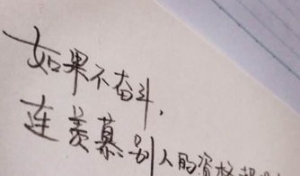 如果不奋斗,
连羡慕别人的资格都